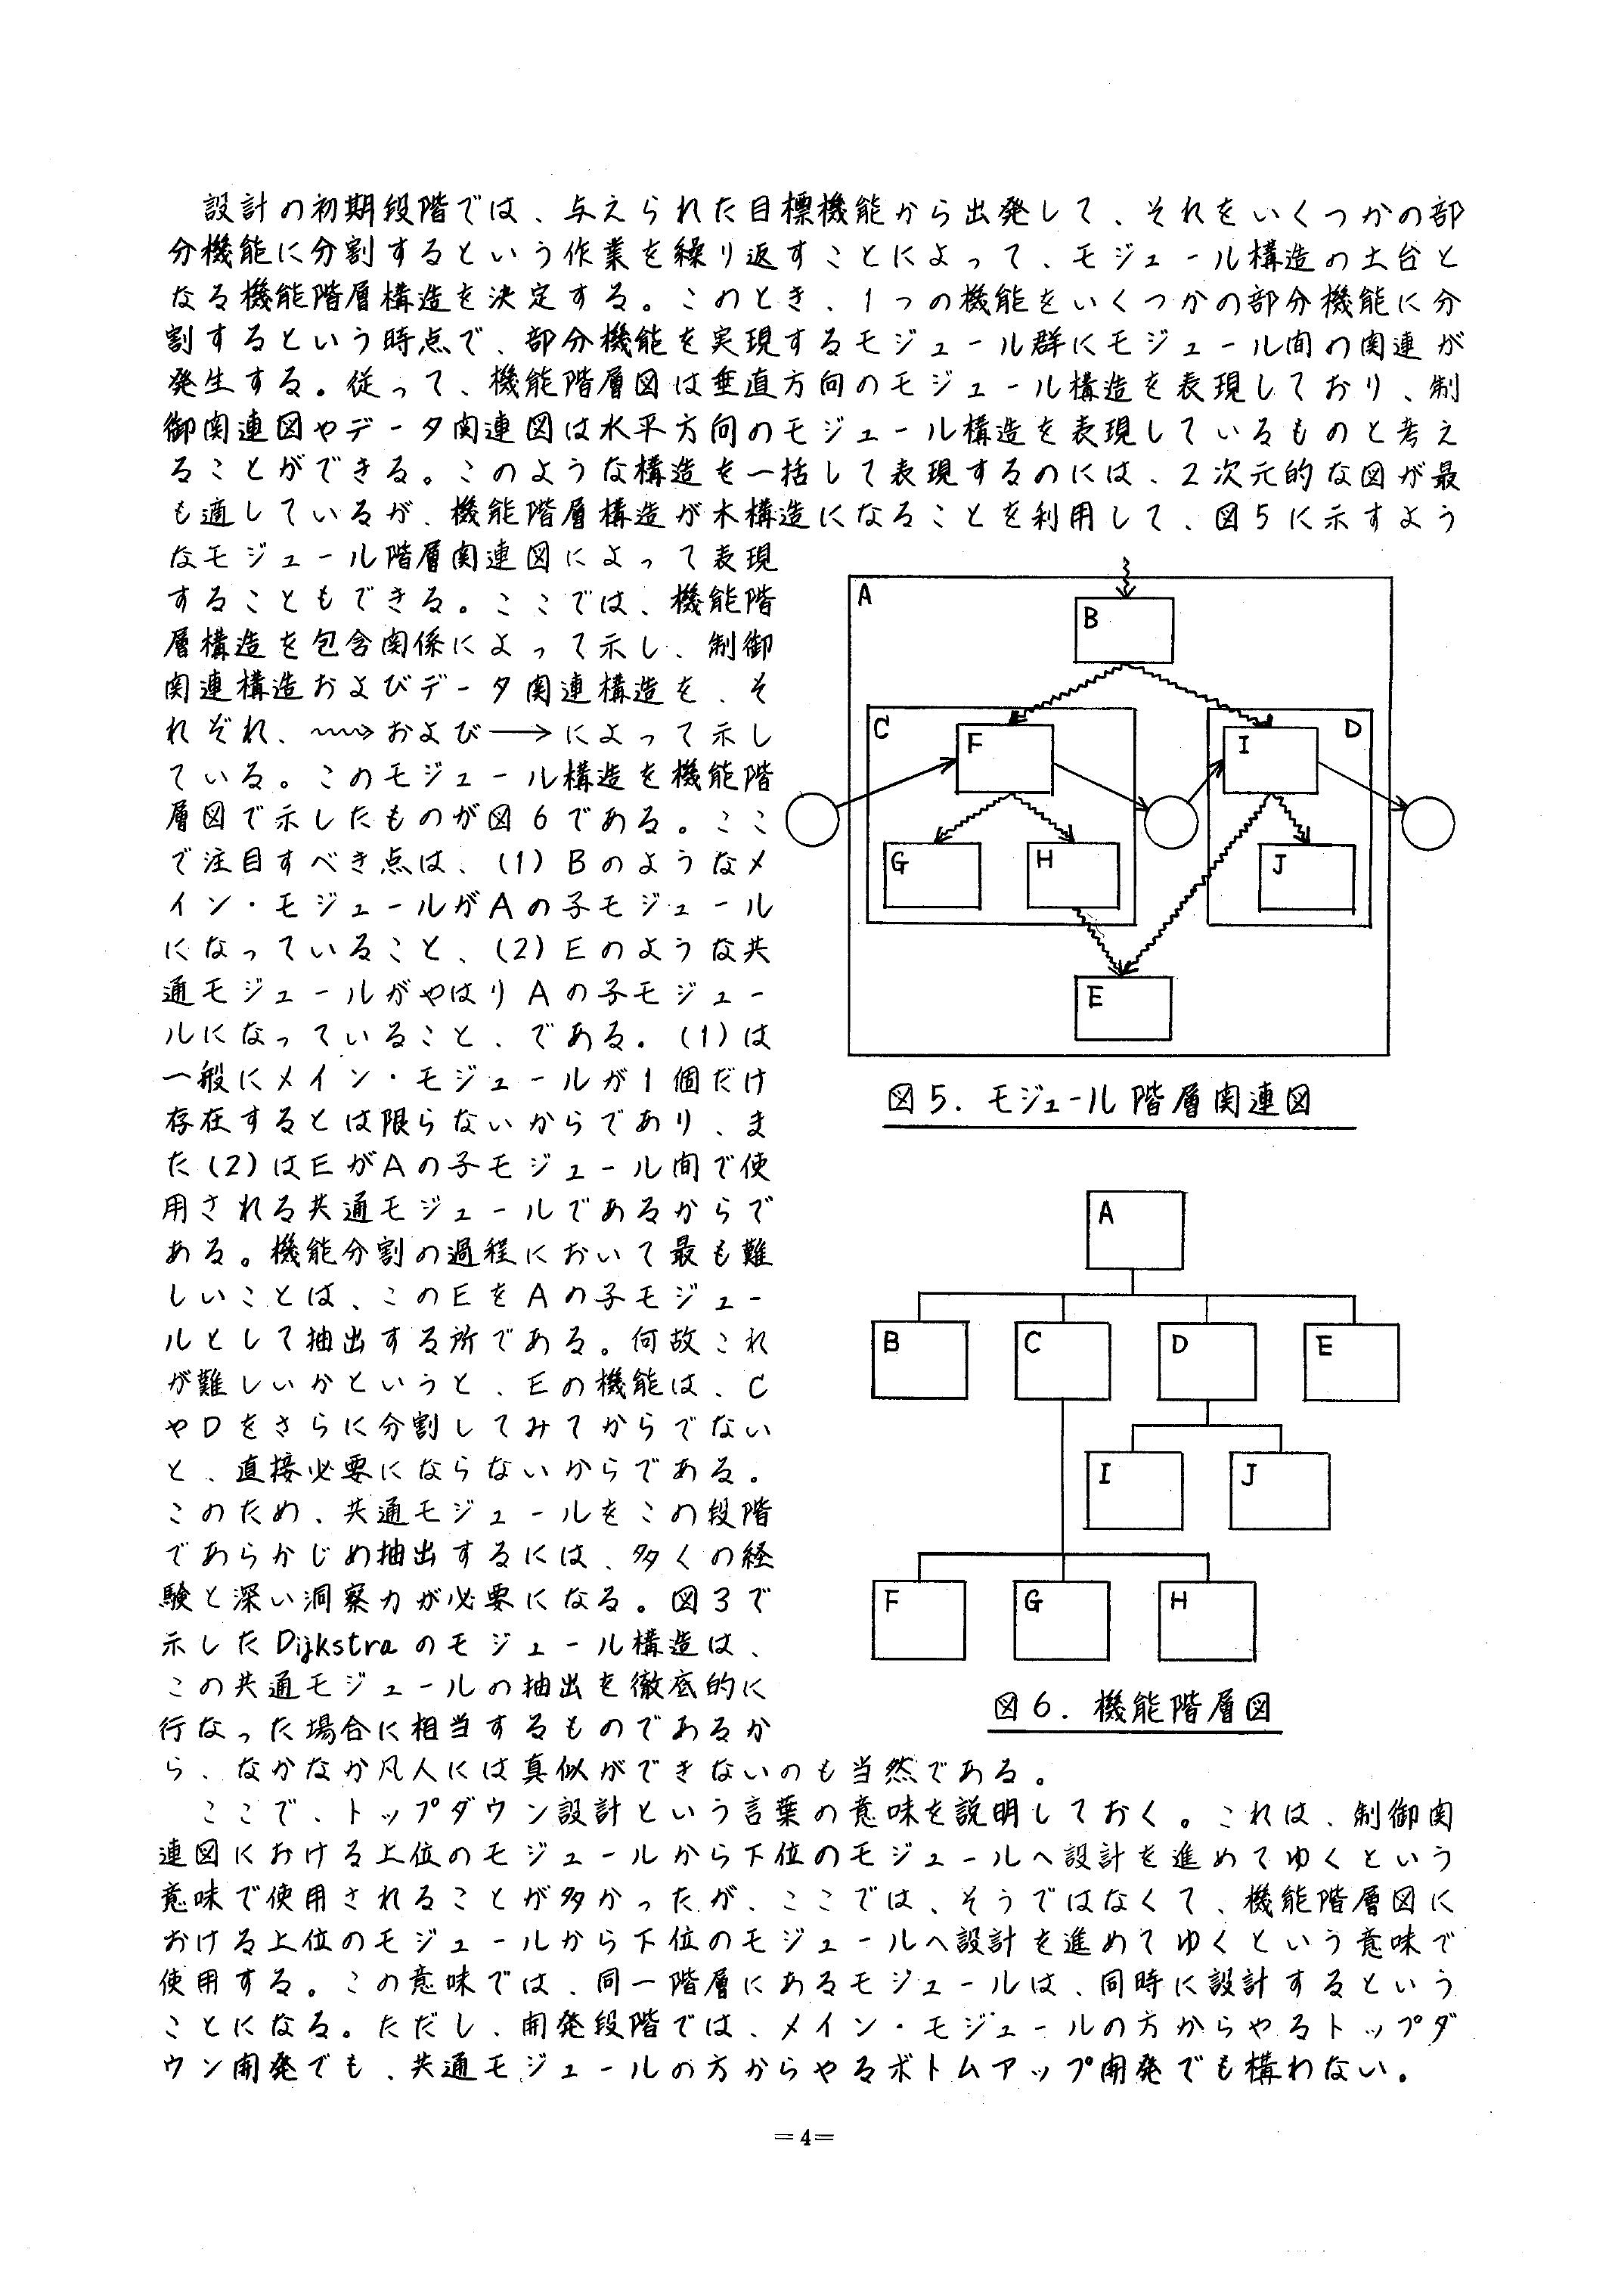 設計の初期段階では、与えられた目標機能から出発して、それをいくつかの部
分機能に分割するという作業を繰り返すことによって、モジュール構造の土台と
なる機能階層構造を決定する。このとき、1つの機能をいくつかの部分機能に分
割するという時点で、部分機能を実現するモジュール群にモジュール間の関連が
発生する。従って、機能階層図は垂直方向のモジュール構造を表現しており、制
御関連図やデータ関連図は水平方向のモジュール構造を表現しているものと考え
ることができる。このような構造を一括して表現するのには、2次元的な図が最
も適しているが、機能階層構造が木構造になることを利用して、図5に示すよう
なモジュール階層関連図によって表現
することもできる。ここでは、機能階
層構造を包含関係によって示し、制御
関連構造およびデータ関連構造を、そ
れぞれ、〰→および→によって示し
ている。このモジュール構造を機能階
層図で示したものが図6である。ここ
で注目すべき点は、(1)Bのようなメ
イン・モジュールがAの子モジュール
になっていること、(2)Eのような共
通モジュールがやはりAの子モジュー
ルになっていること、である。(1)は
一般にメイン・モジュールが1個だけ
存在するとは限らないからであり、ま
た(2)はEがAの子モジュール間で使
用される共通モジュールであるからで
ある。機能分割の過程において最も難
しいことは、このEをAの子モジュー
ルとして抽出する所である。何故これ
が難しいかというと、Eの機能は、C
やDをさらに分割してみてからでない
と、直接必要にならないからである。
このため、共通モジュールをこの段階
であらかじめ抽出するには、多くの経
験と深い洞察力が必要になる。図3で
示したDijkstraのモジュール構造は、
この共通モジュールの抽出を徹底的に
行なった場合に相当するものであるか
ら、なかなか凡人には真似ができないのも当然である。
A
B
C
F
I
D
G
H
J
E
図5. モジュール階層関連図
A
B
C
D
E
I
J
F
G
H
図6. 機能階層図
ここで、トップダウン設計という言葉の意味を説明しておく。これは、制御関
連図における上位のモジュールから下位のモジュールへ設計を進めてゆくという
意味で使用されることが多かったが、ここでは、そうではなくて、機能階層図に
おける上位のモジュールから下位のモジュールへ設計を進めてゆくという意味で
使用する。この意味では、同一階層にあるモジュールは、同時に設計するという
ことになる。ただし、開発段階では、メイン・モジュールの方からやるトップダ
ウン開発でも、共通モジュールの方からやるボトムアップ開発でも構わない。
=4=